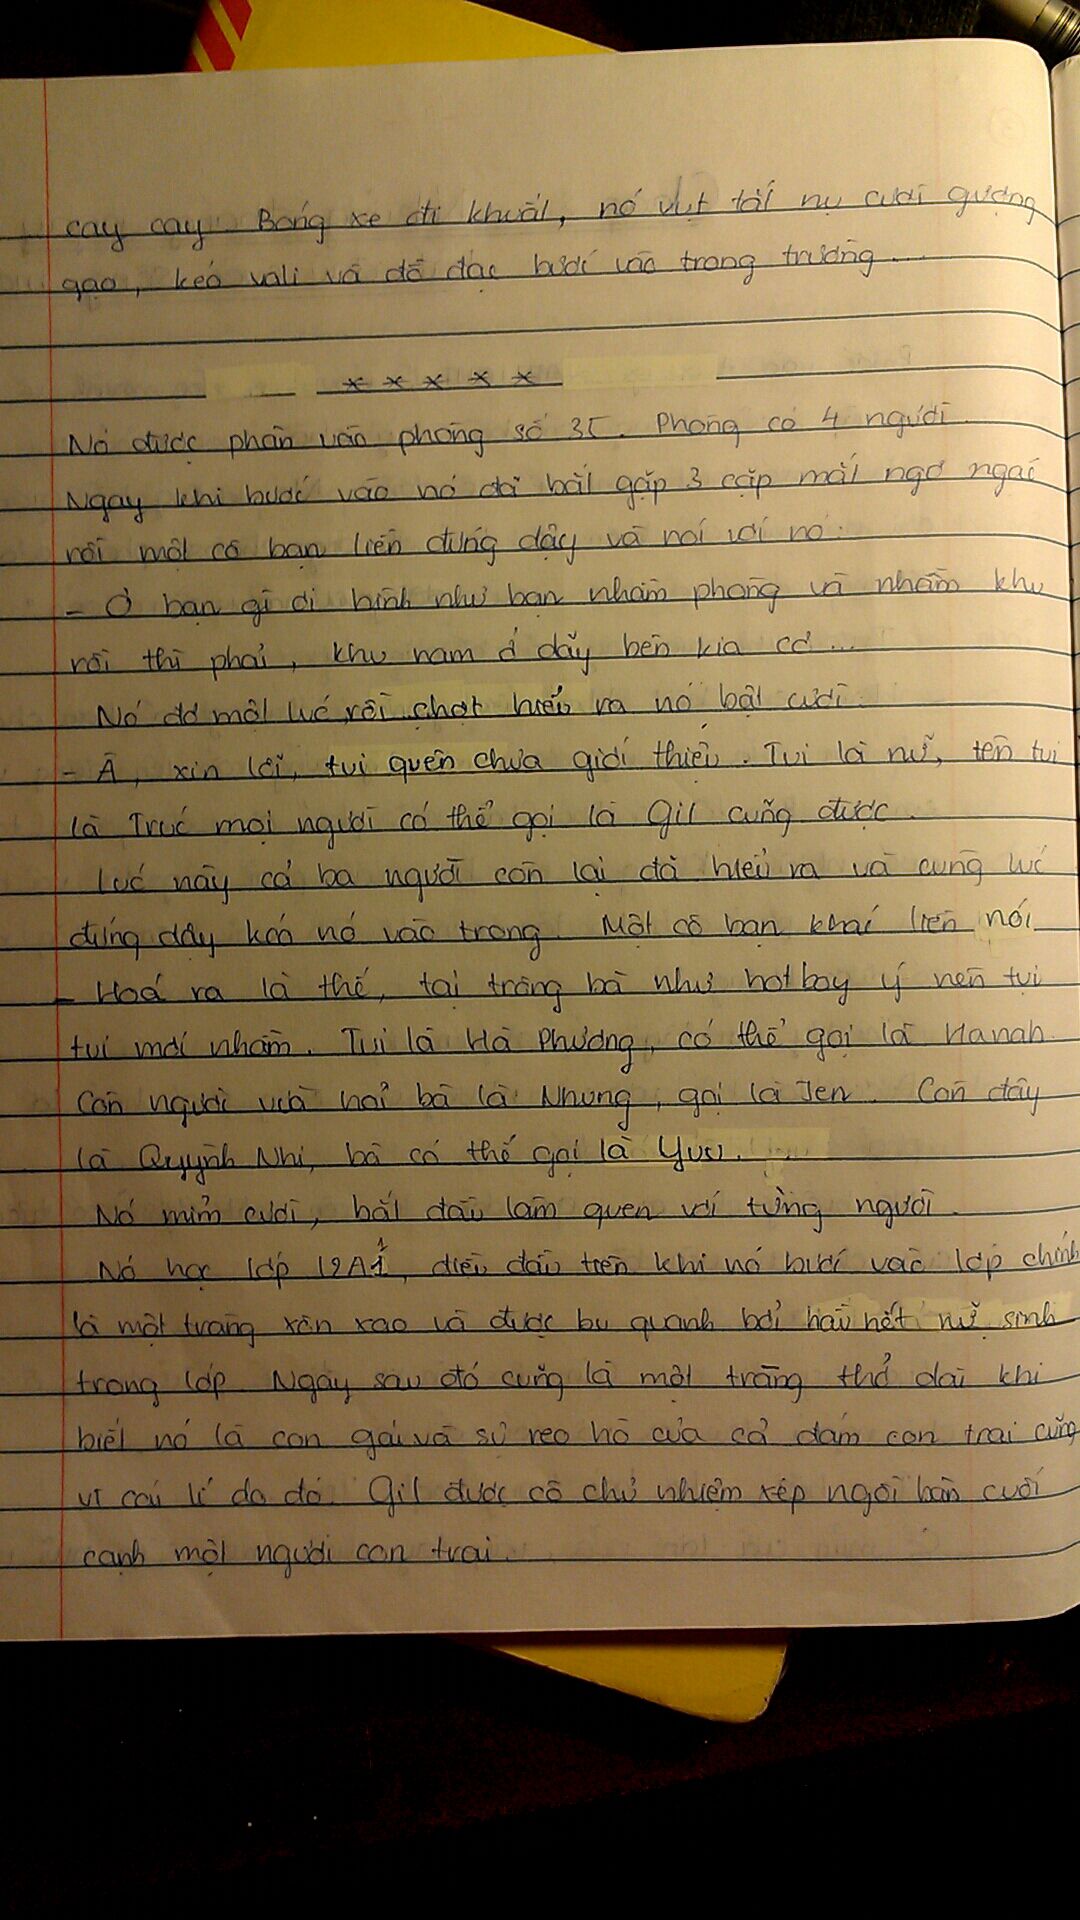 cay cay. Bóng xe đi khuất, nó vụt tắt nụ cười gượng
gạo, kéo vali và đồ đạc bước vào trong trường...
* * * * *
Nó được phân vào phòng số 35. Phòng có 4 người.
Ngay khi bước vào nó đã bắt gặp 3 cặp mắt ngơ ngác
rồi một cô bạn liền đứng dậy và nói với nó:
- Ơ bạn gì ơi hình như bạn nhầm phòng và nhầm khu
rồi thì phải, khu nam ở dãy bên kia cơ...
Nó đơ một lúc rồi chợt hiểu ra nó bật cười:
- À, xin lỗi, tui quên chưa giới thiệu. Tui là nữ, tên tui
là Trúc mọi người có thể gọi là Gil cũng được.
Lúc này cả ba người còn lại đã hiểu ra và cùng lúc
đứng dậy kéo nó vào trong. Một cô bạn khác liền nói
- Hoá ra là thế, tại trông bà như hotboy ý nên tụi
tui mới nhầm. Tui là Hà Phương, có thể gọi là Hanah.
Còn người vừa hỏi bà là Nhung, gọi là Jen. Còn đây
là Quỳnh Nhi, bà có thể gọi là Yuu.
Nó mỉm cười, bắt đầu làm quen với từng người.
Nó học lớp 12A1, điều đầu tiên khi nó bước vào lớp chính
là một tràng xôn xao và được bu quanh bởi hầu hết nữ sinh
trong lớp. Ngay sau đó cũng là một tràng thở dài khi
biết nó là con gái và sự reo hò của cả đám con trai cũng
vì cái lí do đó. Gil được cô chủ nhiệm xếp ngồi bàn cuối
cạnh một người con trai.